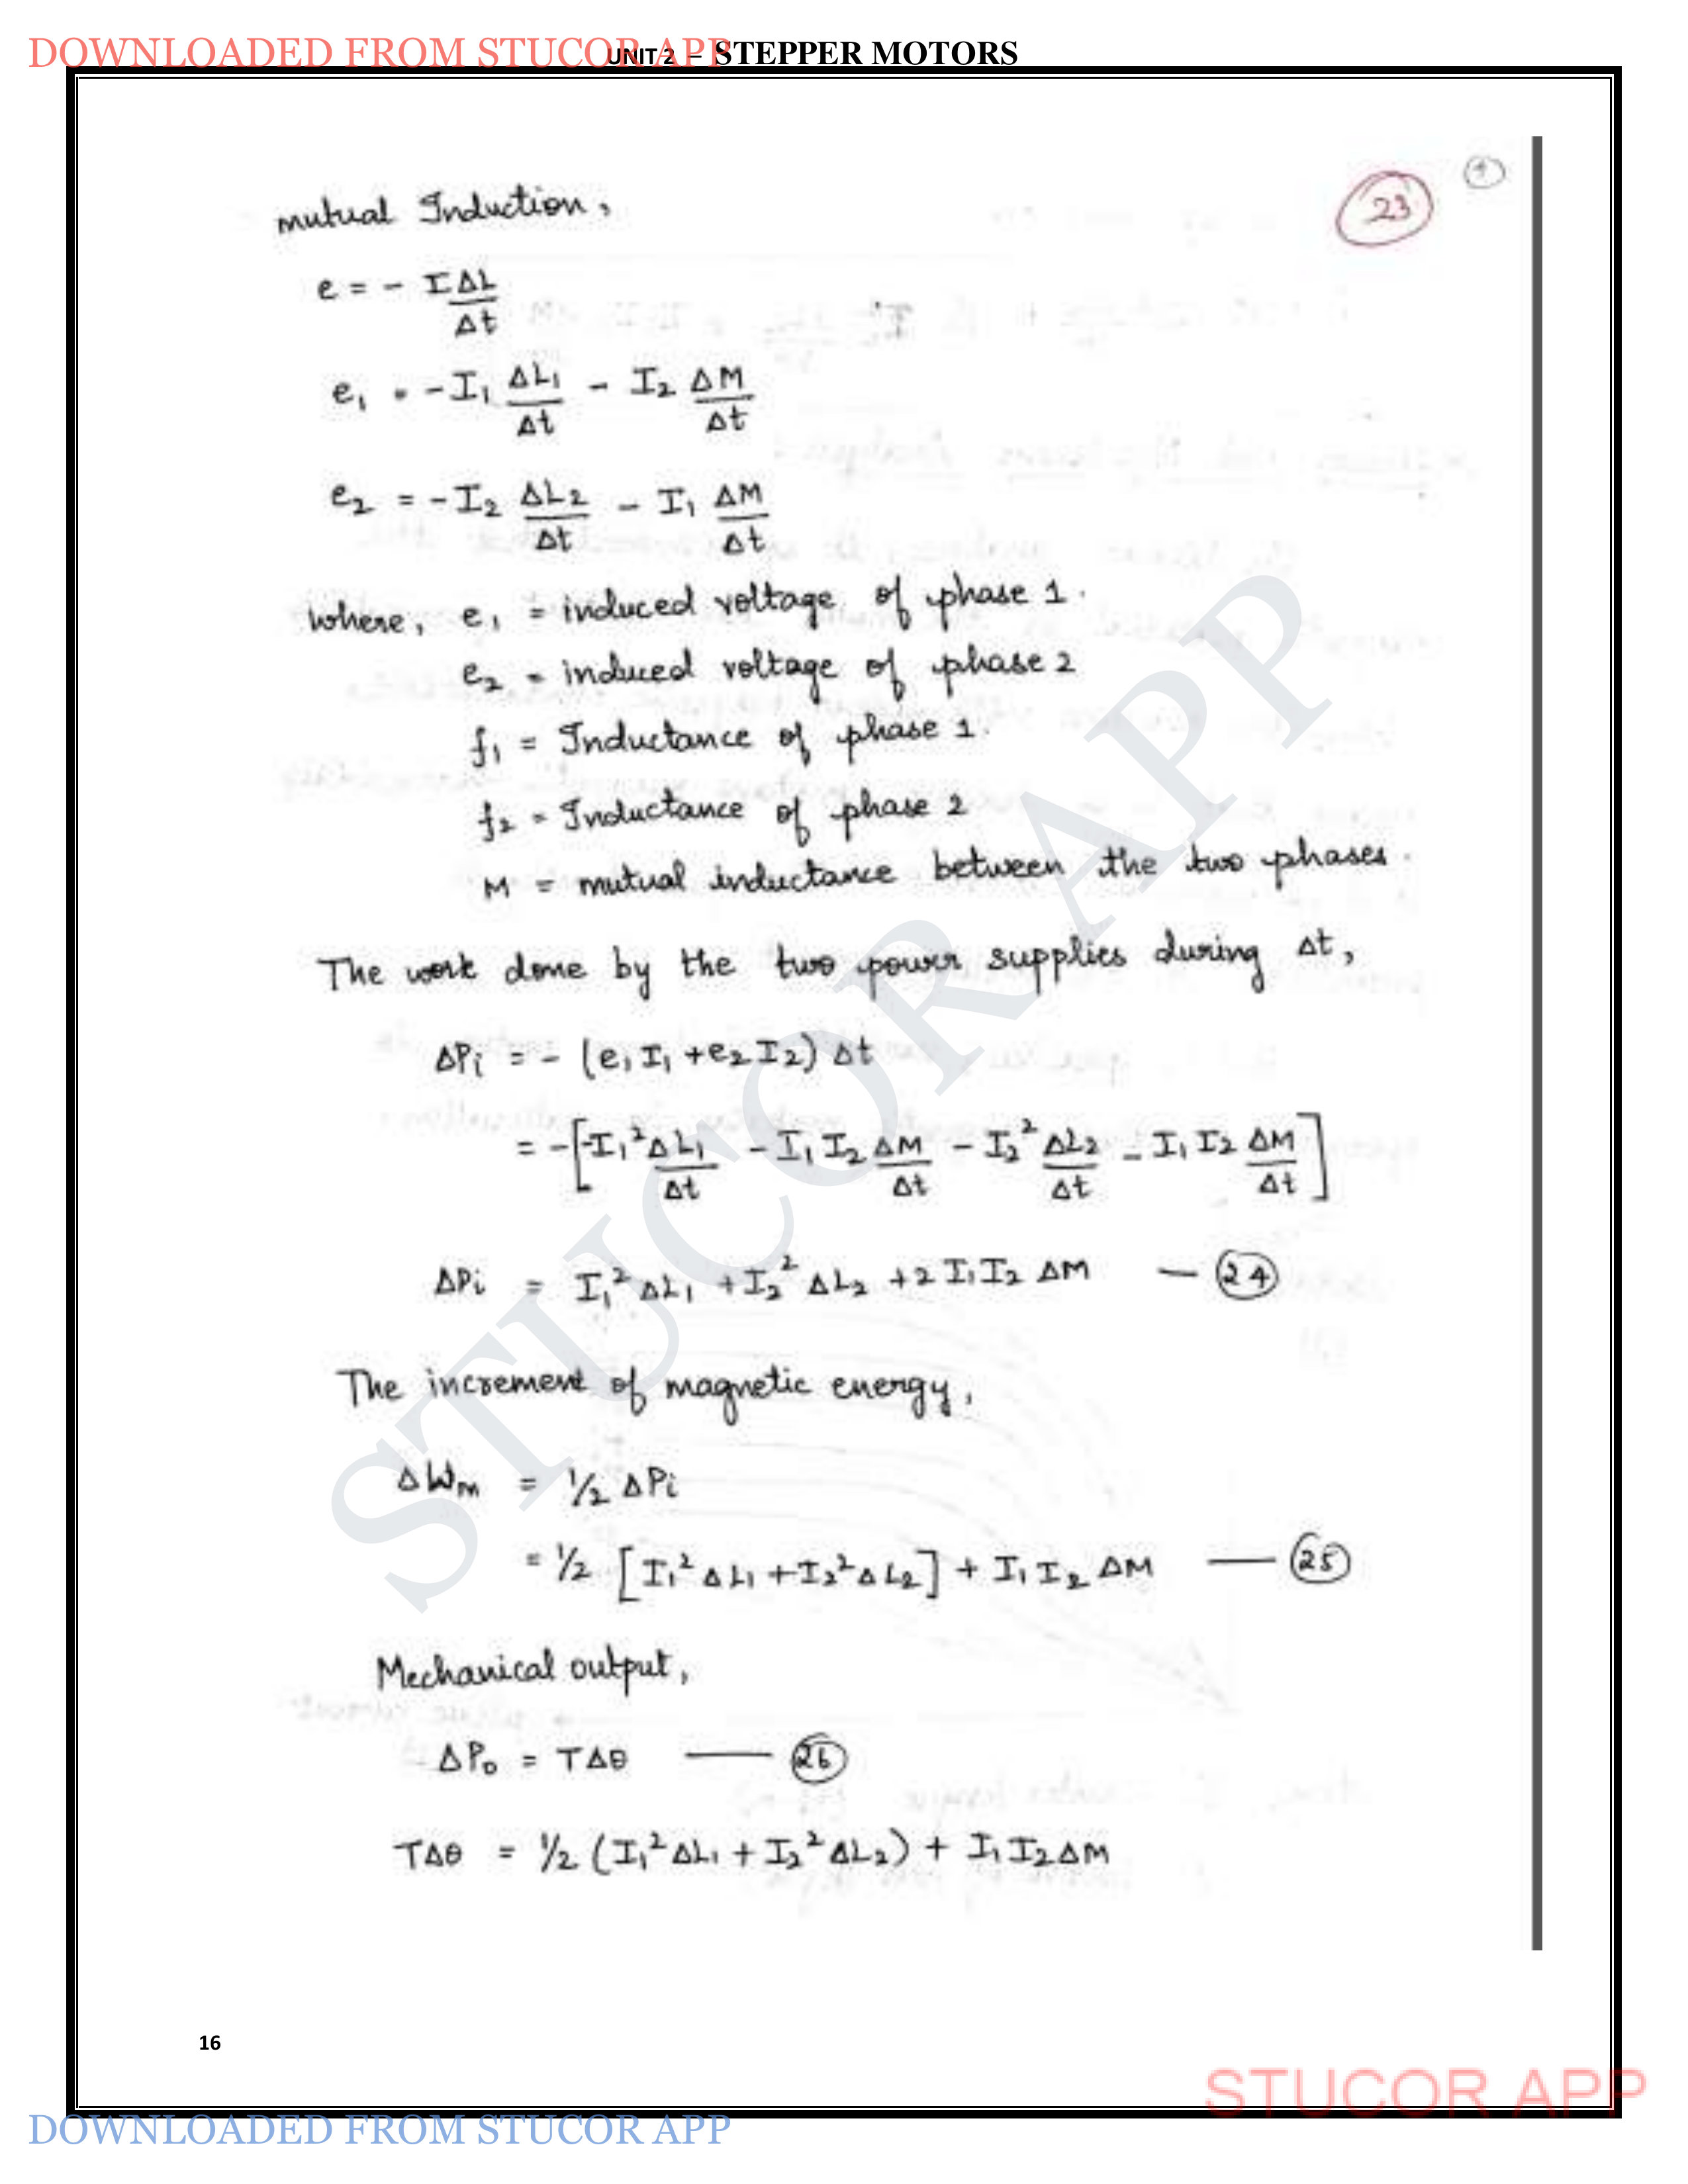 DOWNLOADED FROM STUCOR APP
UNIT 2 – STEPPER MOTORS
23
mutual Induction,
e = - IΔL/Δt
e₁ = -I₁ ΔL₁/Δt - I₂ ΔM/Δt
e₂ = -I₂ ΔL₂/Δt - I₁ ΔM/Δt
where, e₁ = induced voltage of phase 1.
e₂ = induced voltage of phase 2
f₁ = Inductance of phase 1.
f₂ = Inductance of phase 2
M = mutual inductance between the two phases.
The work done by the two power supplies during Δt,
ΔPi = - (e₁ I₁ + e₂ I₂) Δt
= -[-I₁² ΔL₁/Δt - I₁ I₂ ΔM/Δt - I₂² ΔL₂/Δt - I₁ I₂ ΔM/Δt]
ΔPi = I₁² ΔL₁ + I₂² ΔL₂ + 2 I₁ I₂ ΔM — 24
The increment of magnetic energy,
ΔWm = 1/2 ΔPi
= 1/2 [I₁² ΔL₁ + I₂² ΔL₂] + I₁ I₂ ΔM — 25
Mechanical output,
ΔP₀ = TΔθ — 26
TΔθ = 1/2 (I₁² ΔL₁ + I₂² ΔL₂) + I₁ I₂ ΔM
STUCOR APP
16
STUCOR APP
DOWNLOADED FROM STUCOR APP